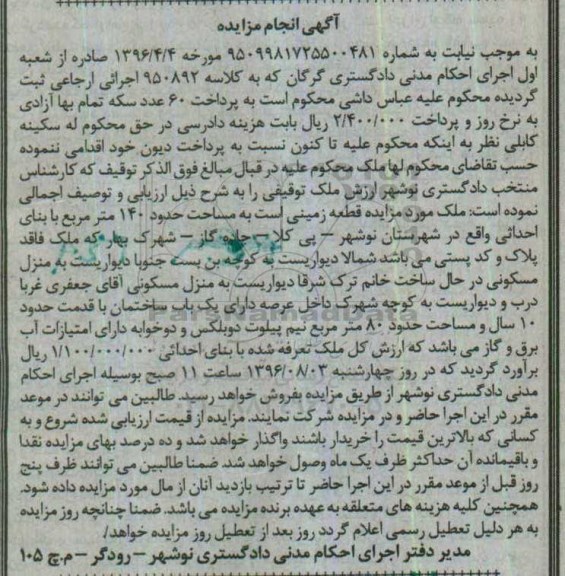 آگهی انجام مزایده
به موجب نیابت به شماره ۹۵۰۹۹۸۱۷۲۵۵۰۰۴۸۱ مورخه ۱۳۹۶/۴/۴ صادره از شعبه
اول اجرای احکام مدنی دادگستری گرگان که به کلاسه ۹۵۰۸۹۲ اجرائی ارجاعی ثبت
گردیده محکوم علیه عباس داشی محکوم است به پرداخت ۶۰ عدد سکه تمام بها آزادی
به نرخ روز و پرداخت ۲/۴۰۰/۰۰۰ ریال بابت هزینه دادرسی در حق محکوم له سکینه
کابلی نظر به اینکه محکوم علیه تا کنون نسبت به پرداخت دیون خود اقدامی ننموده
حسب تقاضای محکوم لها ملک محکوم علیه در قبال مبالغ فوق الذکر توقیف که کارشناس
منتخب دادگستری نوشهر ارزش ملک توقیفی را به شرح ذیل ارزیابی و توصیف اجمالی
نموده است: ملک مورد مزایده قطعه زمینی است به مساحت حدود ۱۴۰ متر مربع با بنای
احداثی واقع در شهرستان نوشهر – پی کلا – جاده گاز – شهرک بهار که ملک فاقد
پلاک و کد پستی می باشد شمالا دیواریست به کوچه بن بست جنوبا دیواریست به منزل
مسکونی در حال ساخت خانم ترک شرقا دیواریست به منزل مسکونی آقای جعفری غربا
درب و دیواریست به کوچه شهرک داخل عرصه دارای یک باب ساختمان با قدمت حدود
۱۰ سال و مساحت حدود ۸۰ متر مربع نیم پیلوت دوبلکس و دوخوابه دارای امتیازات آب
برق و گاز می باشد که ارزش کل ملک تعرفه شده با بنای احداثی ۱/۱۰۰/۰۰۰/۰۰۰ ریال
برآورد گردید که در روز چهارشنبه ۱۳۹۶/۰۸/۰۳ ساعت ۱۱ صبح بوسیله اجرای احکام
مدنی دادگستری نوشهر از طریق مزایده بفروش خواهد رسید. طالبین می توانند در موعد
مقرر در این اجرا حاضر و در مزایده شرکت نمایند. مزایده از قیمت ارزیابی شده شروع و به
کسانی که بالاترین قیمت را خریدار باشند واگذار خواهد شد و ده درصد بهای مزایده نقدا
و باقیمانده آن حداکثر ظرف یک ماه وصول خواهد شد. ضمنا طالبین می توانند ظرف پنج
روز قبل از موعد مقرر در این اجرا حاضر تا ترتیب بازدید آنان از مال مورد مزایده داده شود.
همچنین کلیه هزینه های متعلقه به عهده برنده مزایده می باشد. ضمنا چنانچه روز مزایده
به هر دلیل تعطیل رسمی اعلام گردد روز بعد از تعطیل روز مزایده خواهد/.
مدیر دفتر اجرای احکام مدنی دادگستری نوشهر – رودگر – م.چ ۱۰۵
ParsNamadData